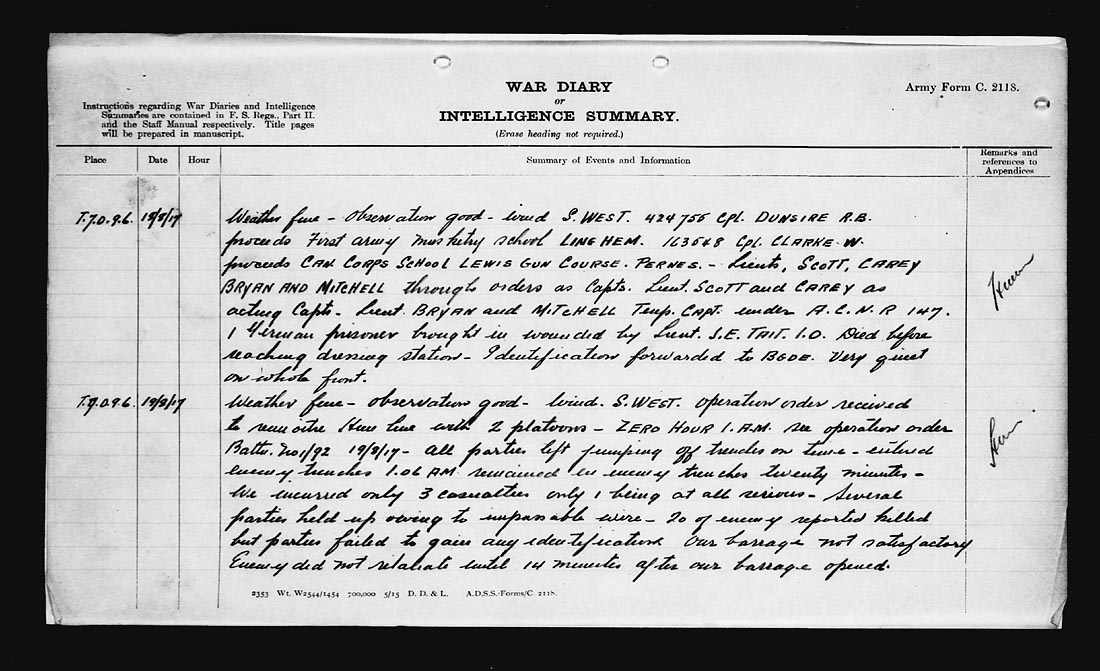 WAR DIARY
or
INTELLIGENCE SUMMARY.
(Erase heading not required.)
Army Form C. 2118.
Instructions regarding War Diaries and Intelligence
Summaries are contained in F. S. Regs., Part II.
and the Staff Manual respectively. Title pages
will be prepared in manuscript.
Place Date Hour Summary of Events and Information Remarks and references to Appendices
T.7.D.9.6. 18/8/17 Weather fine - Observation good - wind S. WEST. 424755 Cpl. DUNSIRE R.B.
proceeds First army musketry school LINGHEM. 163548 Cpl. CLARKE. W.
proceeds CAN CORPS SCHOOL LEWIS GUN COURSE. PERNES. - Lieuts, SCOTT, CAREY
BRYAN AND MITCHELL through orders as Capts. Lieut. SCOTT and CAREY as
acting Capts. Lieut. BRYAN and MITCHELL Temp. Capt. under A.C.N.R 147.
1 German prisoner brought in wounded by Lieut. S.E. TAIT. I.O. Died before
reaching dressing station - Identification forwarded to BGDE. Very quiet
on whole front.
T.7.D.9.6. 19/8/17 Weather fine - Observation good - Wind. S. WEST. Operation order received
to renoitre Hun line with 2 platoons - ZERO HOUR 1. A.M. see operation order
Battn. No 1/92 19/8/17 - All parties left jumping off trenches on time - entered
enemy trenches 1.06 AM remained in enemy trenches twenty minutes -
We incurred only 3 casualties only 1 being at all serious - Several
parties held up owing to impassable wire - 20 of enemy reported killed
but parties failed to gain any identification. Our barrage not satisfactory
Enemy did not retaliate until 14 minutes after our barrage opened.
2353 Wt. W2544/1454 700,000 5/15 D. D. & L. A.D.S.S./Forms/C. 2118.